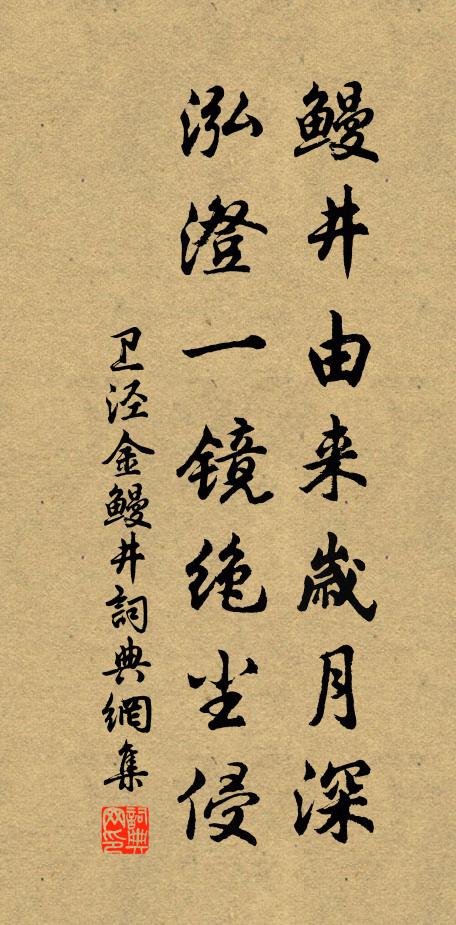 鳗井由来岁月深
泓澄一镜绝尘侵
卫泾金鳗井詞典網集
詞典网印